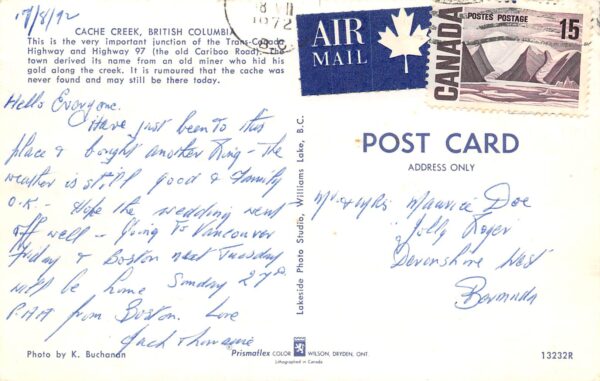 17/8/72
CACHE CREEK, BRITISH COLUMBIA
This is the very important junction of the Trans-Canada
Highway and Highway 97 (the old Cariboo Road). The
town derived its name from an old miner who hid his
gold along the creek. It is rumoured that the cache was
never found and may still be there today.
Hello Everyone.
Have just been to this
place & bought another Ring - The
weather is still good & Family
O.K - Hope the wedding went
off well - Going To Vancouver
Friday & Boston next Tuesday
will be home Sunday 27
from Boston. Love
Jack
Photo by K. Buchanan
1972
AIR
MAIL
CANADA
POSTES POSTAGE
15
POST CARD
ADDRESS ONLY
Mr & Mrs Maurice Doe
"Jolly Roger
Devonshire West
Bermuda
Lakeside Photo Studio, Williams Lake, B.C.
Prismaflex COLOR WILSON, DRYDEN, ONT.
Lithographed in Canada
13232R